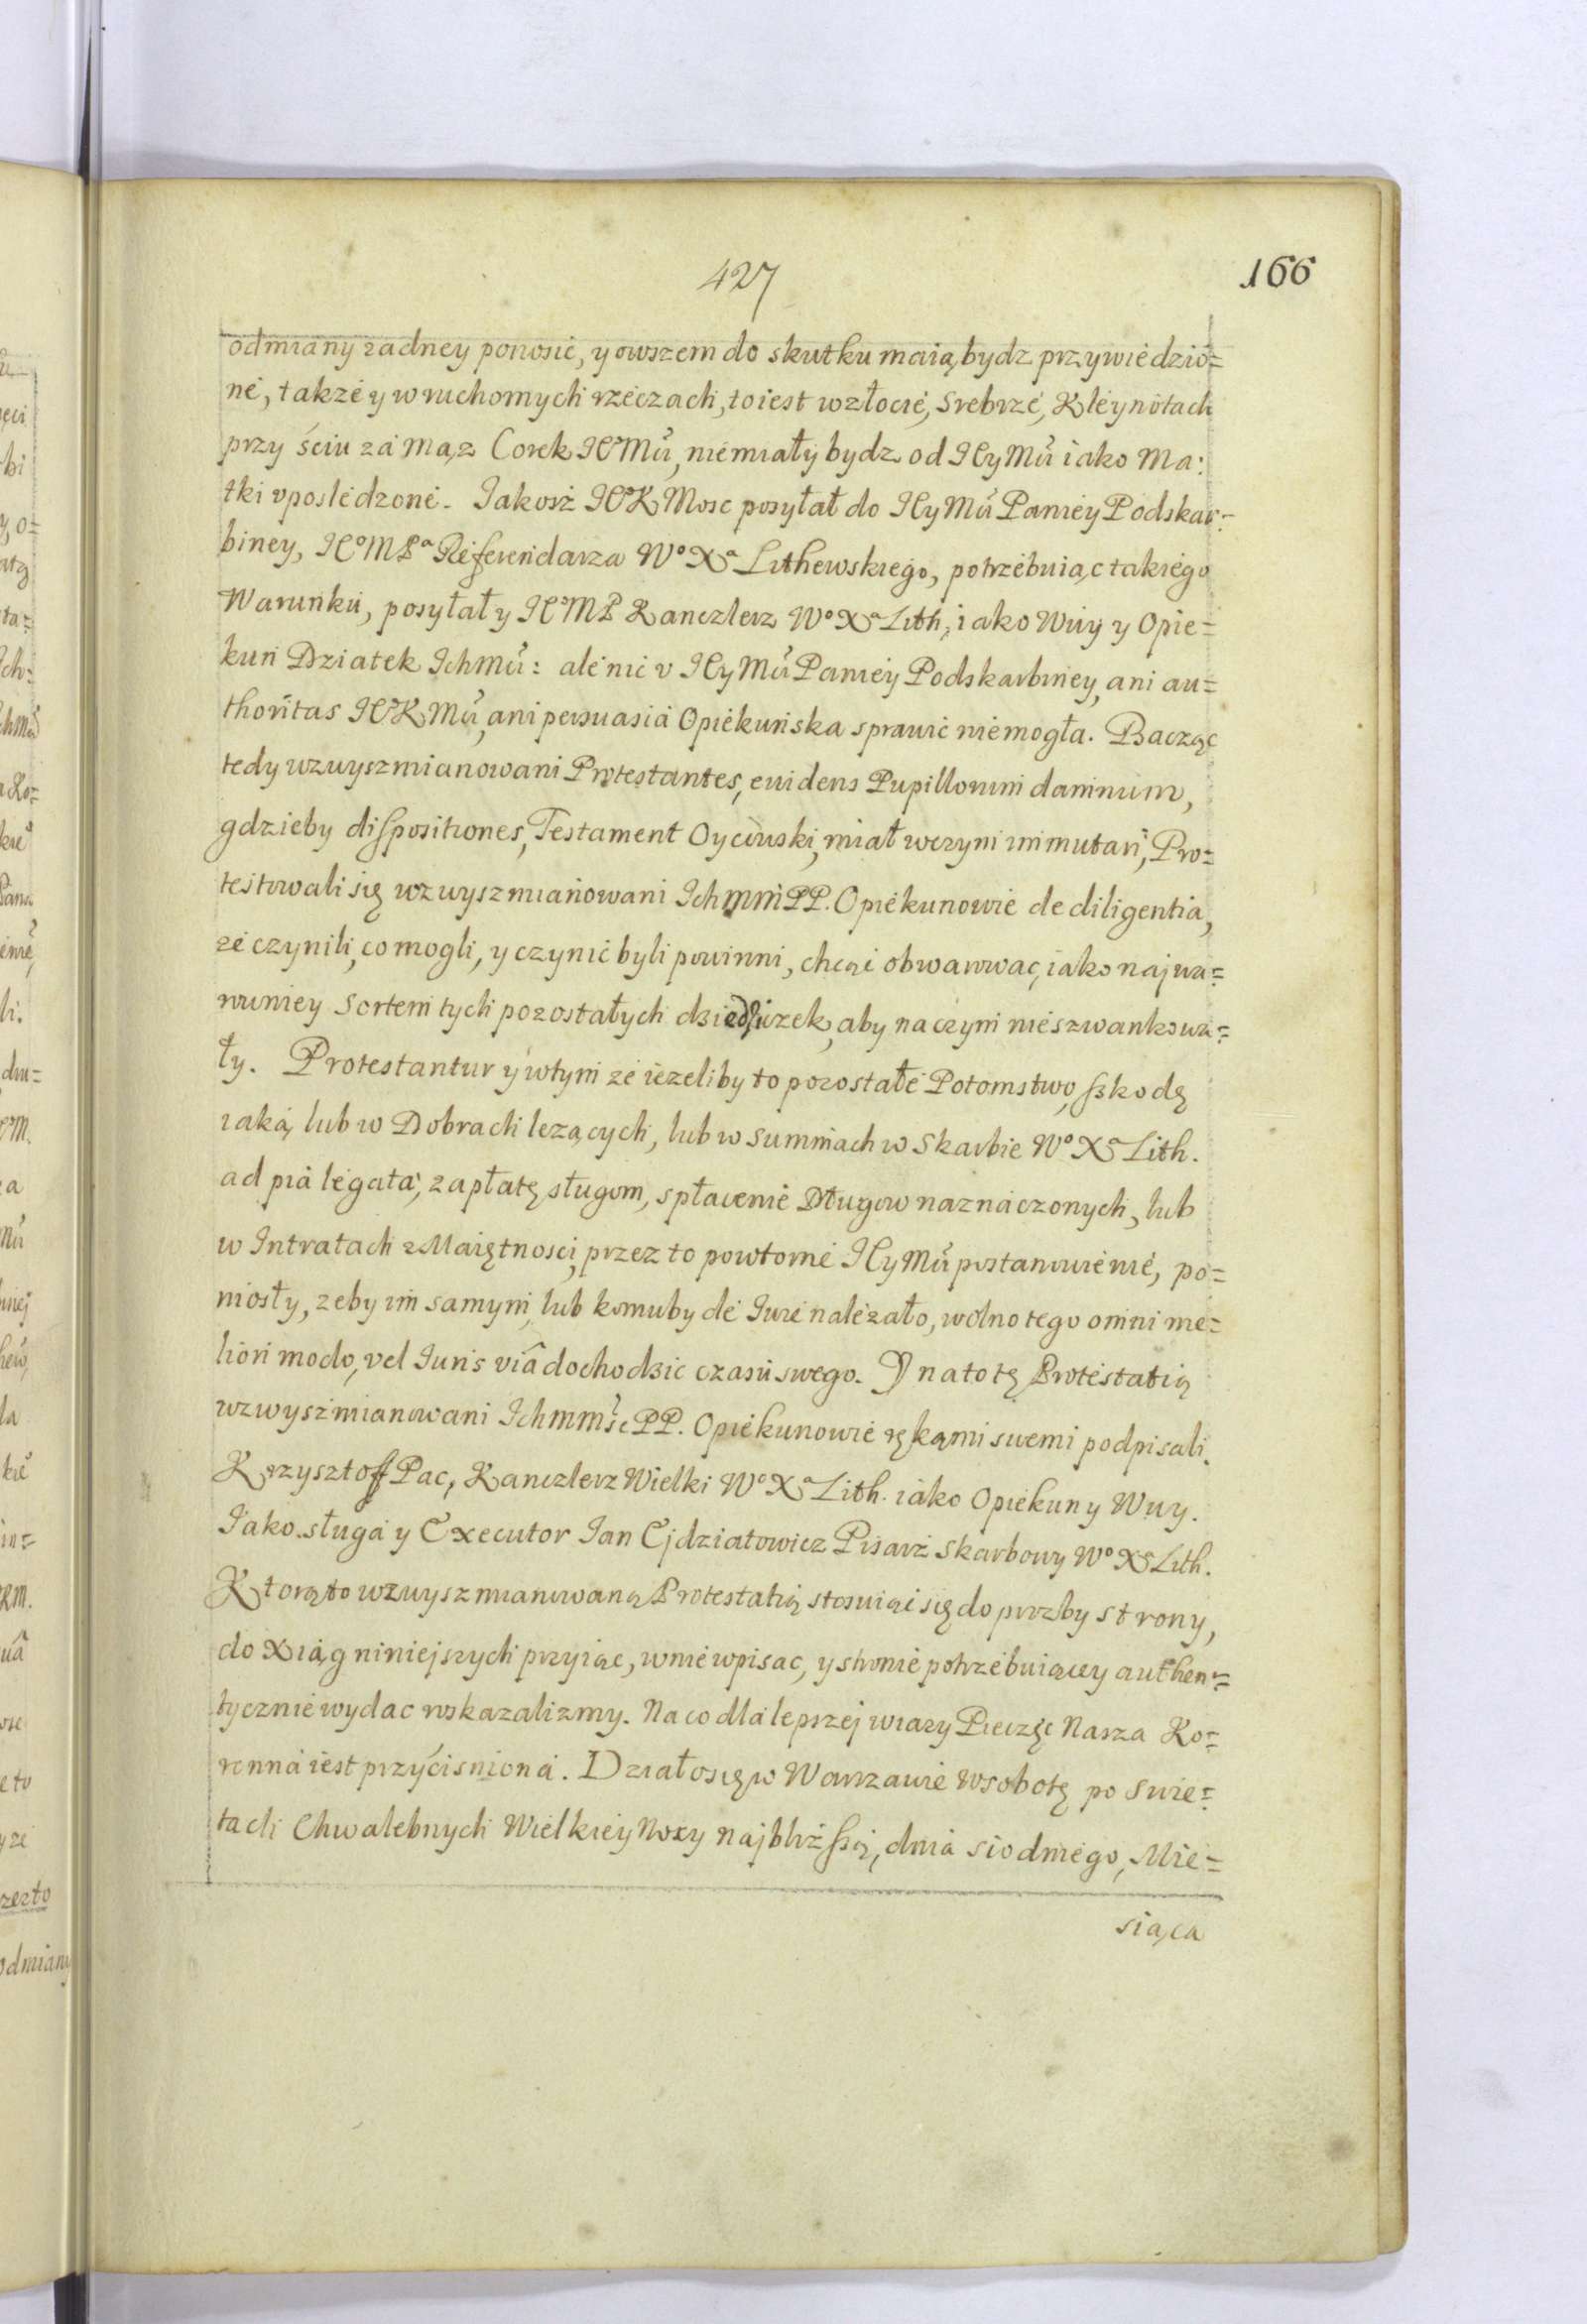 427
166
odmiany żadney ponosić, y owszem do skutku maią bydz przywiedzio=
né, także y w ruchomych rzeczach, to iest w złocié, Srebrzé, Kléynotach
przy ściu zá mąz Corek JEoMci, niémiały bydz od JEyMci iako Ma:
tki vposledzoné. Jakosz JEoKMosc posyłał do JEyMci Paniéy Podskar=
biney, JEoMPa Réferendarza Wo Xa Lithewskiégo, potrzébuiąc takiégo
Warunku, posyłał y JEoMP Kanczlerz Wo Xa Lith, iako Wuy y Opie=
kun Dziatek Ichmci: alé nic v JEyMci Paniéy Podskarbiney, ani au=
thoritas JEoKMci, ani persuasia Opiékunska sprawić niémogła. Bacząc
tedy wzwyszmianowani Protestantes, euidens Pupillorum damnum,
gdzieby dispositiones, Testament Oycowski, miał w czym immutari, Pro=
testowali się wzwyszmianowani Ichmm PP. Opiékunowié de diligentia,
zé czynili, co mogli, y czynić byli powinni, chcąc obwarować, iako najwa=
rowniey Sortem tych pozostałych dziedziczek, aby na czym niészwankowa=
ły. Protestantur y w tym zé iezeliby to pozostałé Potomstwo, szkodę
iaką, lub w Dobrach lezących, lub w summach w Skarbie Wo Xa Lith.
ad pia légata, zapłatę sługom, spłacenié Długow naznaczonych, lub
w Intratach z Maiętnosci, przez to powtorné JEyMci postanowiénié, po=
niosły, zeby im samym, lub komuby dé Iuré nalézało, wolno tego omni me=
liori modo, vel Iuris viâ dochodzic czasu swego. Y na totę Protéstatią
wzwyszmianowani Ichmmsc PP. Opiékunowié rękami swemi podpisali.
Krzysztoff Pac, Kanczlerz Wielki Wo Xa Lith. iáko Opiékun y Wuy.
Jako sługa y Executor Ian Ejdziatowicz Pisarz Skarbowy Wo Xa Lith.
Ktorąto wzwyszmianowaną Protestatią stosuiąc się do prozby strony,
do Xiąg niniejszych przyiąc, w nié wpisac, y stronié potrzébuiącey authen=
tycznié wydac roskazalizmy. Na co dla lepszej wiary Pieczęć Nasza Ko=
ronna iést przyćisniona. Działo się w Warszawié w sobotę po Swię=
tach Chwalebnych Wielkiéy Nocy najbliższą, dnia siodmégo, Mie=
siąca